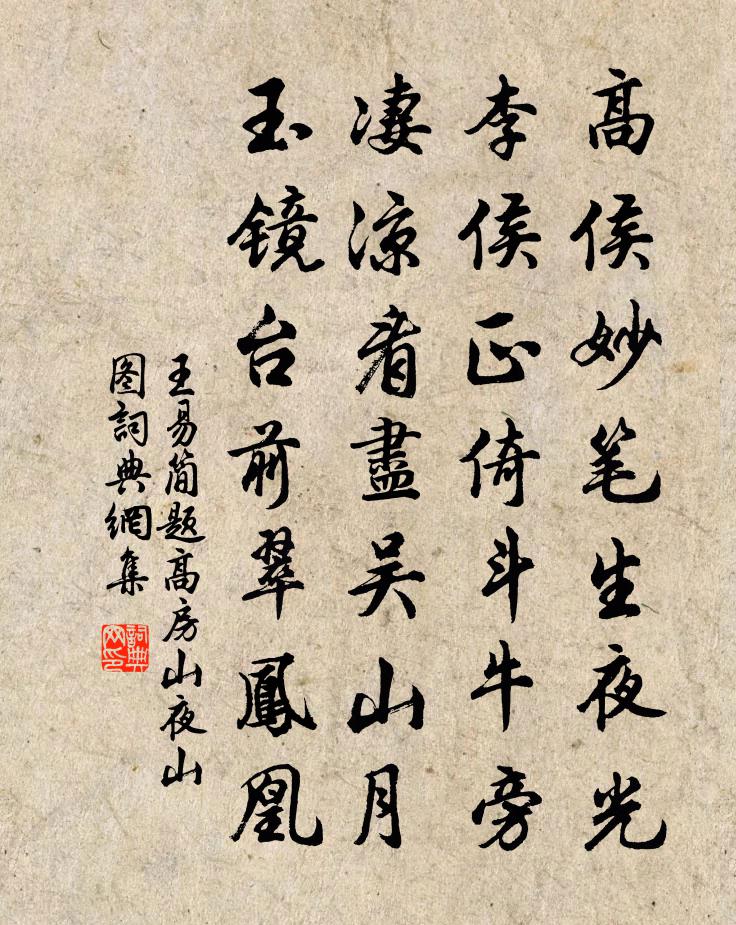 高侯妙笔生夜光
李侯正倚斗牛旁
凄凉看盡吴山月
玉镜台前翠鳳凰
王易简题高房山夜山
图詞典網集
詞典
网印